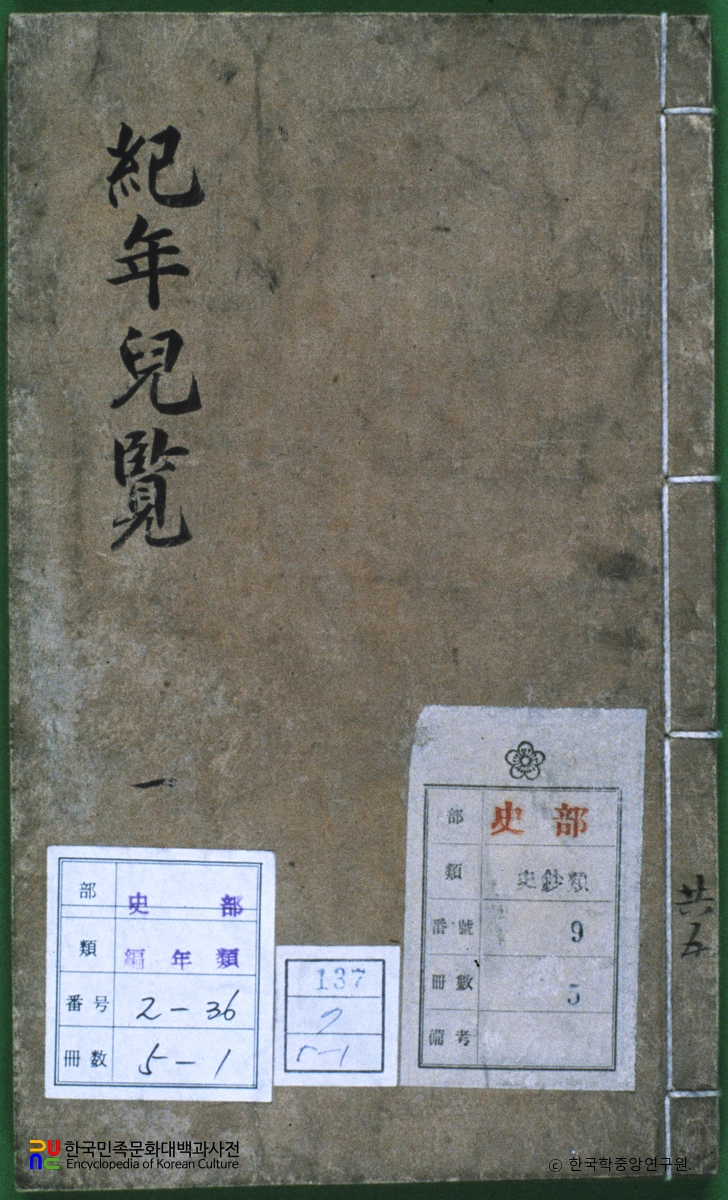 紀年兒覽
一
共五
部 史部
類 史鈔類
番號 9
冊數 5
備考
部 史部
類 編年類
番号 2-36
冊数 5-1
137
2
5-1
한국민족문화대백과사전
Encyclopedia of Korean Culture
© 한국학중앙연구원